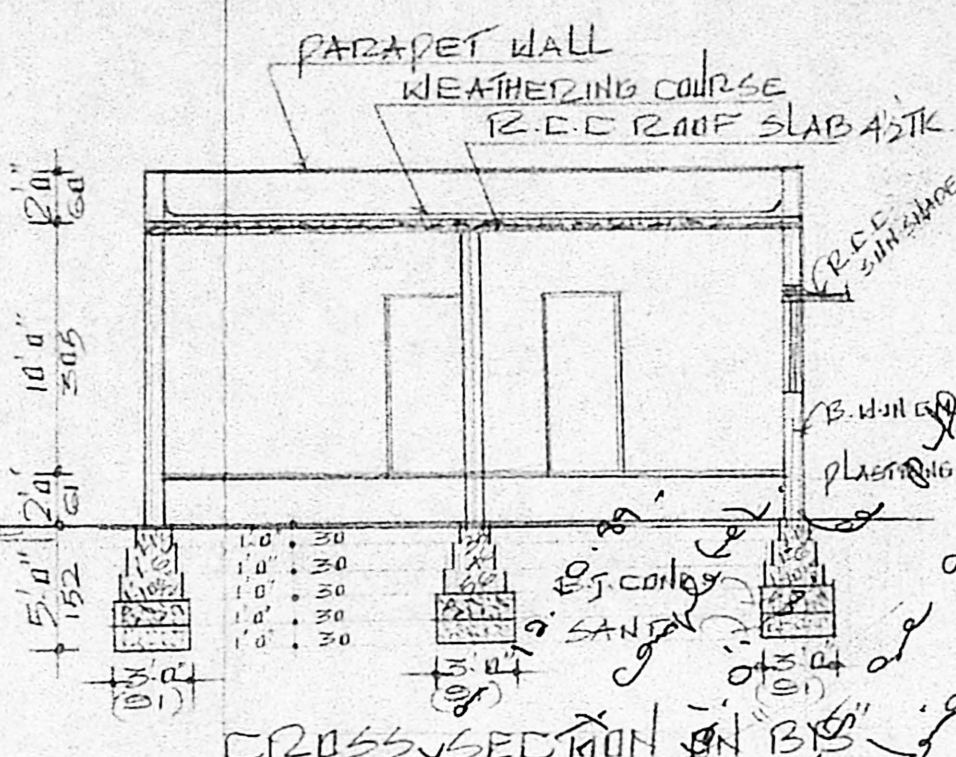 PARAPET WALL
WEATHERING COURSE
R.C.C ROOF SLAB 4½"TK
R.C.C
SUN SHADE
2'0"
60
10'0"
305
2'0"
61
5'0"
152
PLASTRING
1'0" : 30
1'0" : 30
1'0" : 30
1'0" : 30
1'0" : 30
SAND
3'0"
(91)
3'0"
3'0"
(91)
CROSS SECTION ON